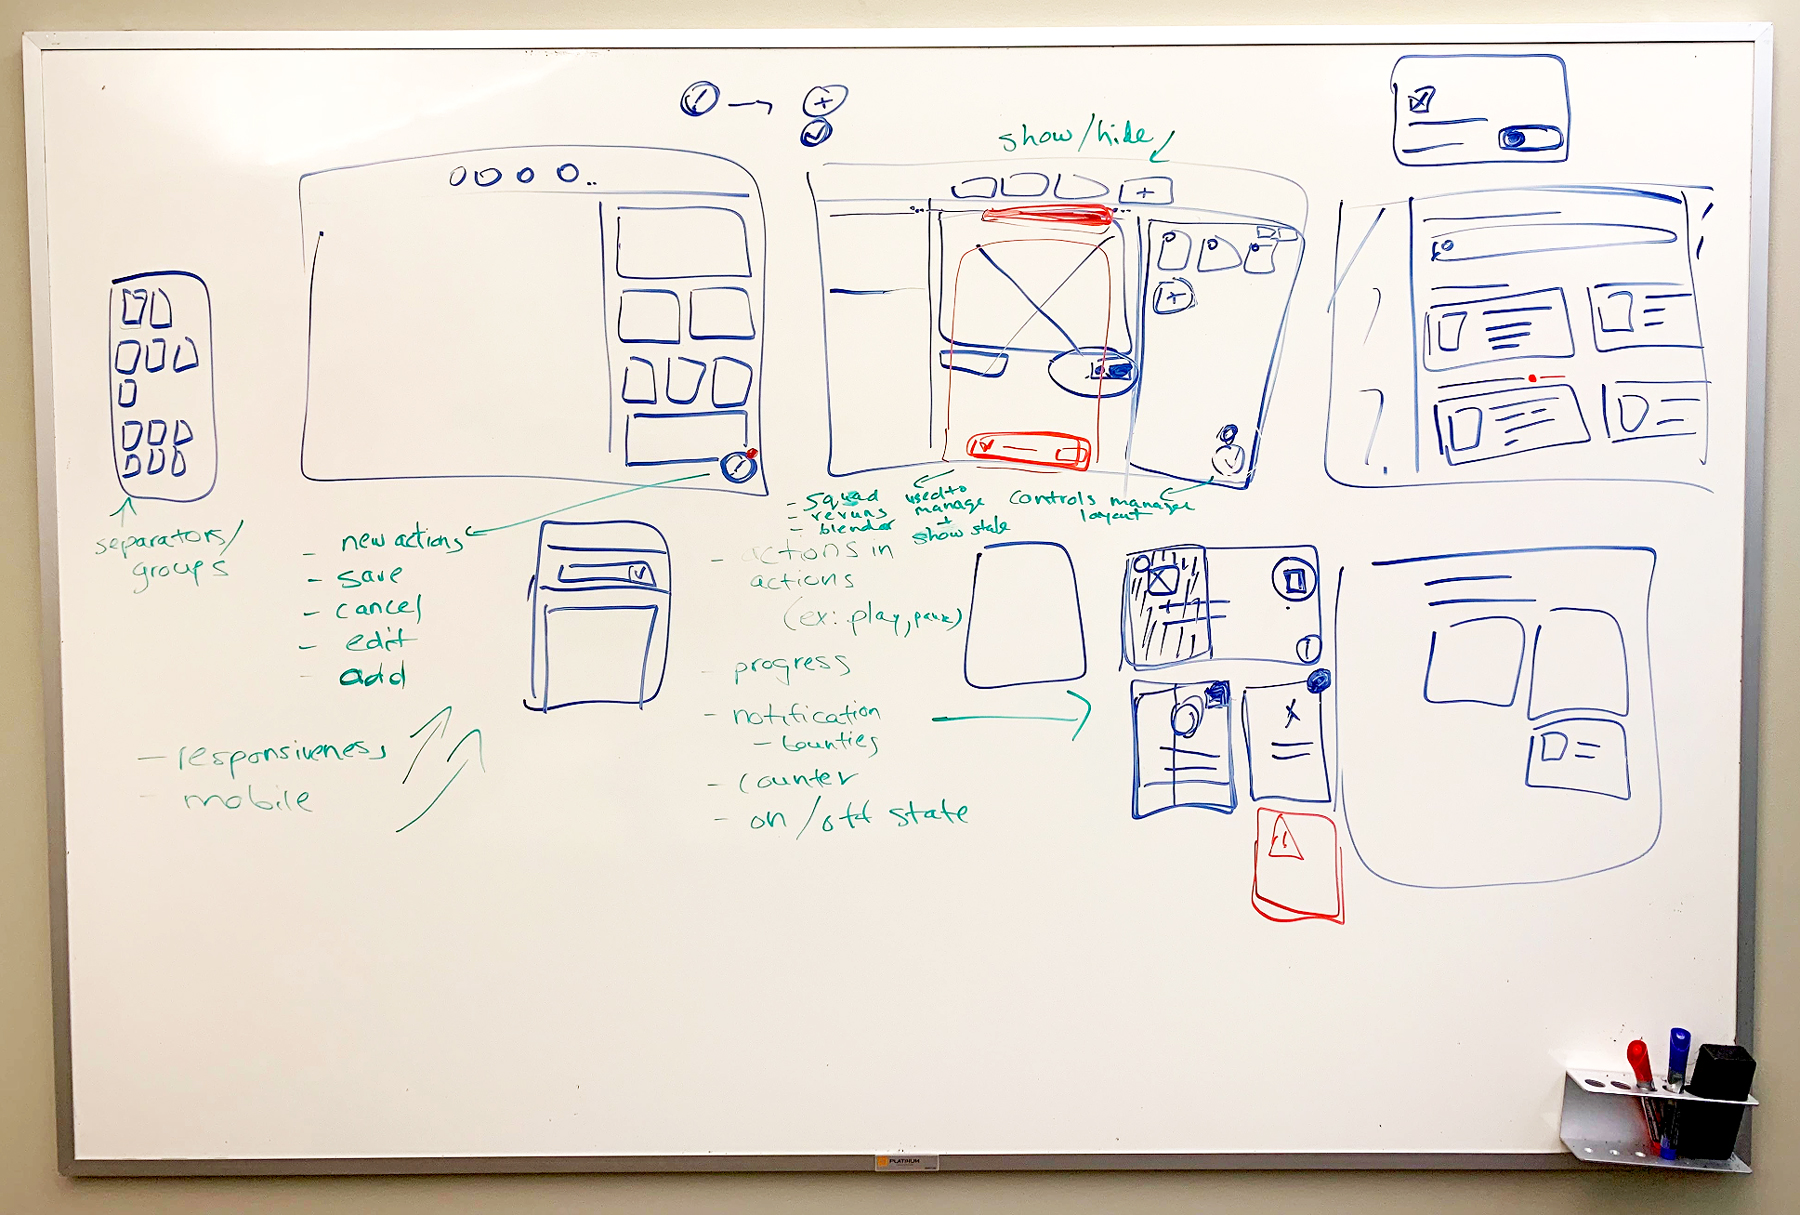 show/hide
separators/
groups
- new actions
- save
- cancel
- edit
- add
- responsiveness
- mobile
- squad
- reruns
- blender
used to
manage
+
show state
controls manager
layout
- actions in
actions
(ex: play, pause)
- progress
- notification
- bounties
- counter
- on/off state
PLATINUM